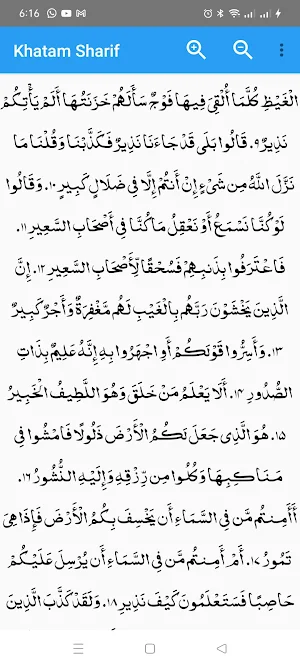 6:16
Khatam Sharif
الْغَيْظِ كُلَّمَا أُلْقِيَ فِيهَا فَوْجٌ سَأَلَهُمْ خَزَنَتُهَا أَلَمْ يَأْتِكُمْ
نَذِيرٌ ٩. قَالُوا بَلَى قَدْ جَاءَنَا نَذِيرٌ فَكَذَّبْنَا وَقُلْنَا مَا
نَزَّلَ اللَّهُ مِن شَيْءٍ إِنْ أَنتُمْ إِلَّا فِي ضَلَالٍ كَبِيرٍ ١٠. وَقَالُوا
لَوْ كُنَّا نَسْمَعُ أَوْ نَعْقِلُ مَا كُنَّا فِي أَصْحَابِ السَّعِيرِ ١١.
فَاعْتَرَفُوا بِذَنبِهِمْ فَسُحْقًا لِّأَصْحَابِ السَّعِيرِ ١٢. إِنَّ
الَّذِينَ يَخْشَوْنَ رَبَّهُم بِالْغَيْبِ لَهُم مَّغْفِرَةٌ وَأَجْرٌ كَبِيرٌ
١٣. وَأَسِرُّوا قَوْلَكُمْ أَوِ اجْهَرُوا بِهِ إِنَّهُ عَلِيمٌ بِذَاتِ
الصُّدُورِ ١٤. أَلَا يَعْلَمُ مَنْ خَلَقَ وَهُوَ اللَّطِيفُ الْخَبِيرُ
١٥. هُوَ الَّذِي جَعَلَ لَكُمُ الْأَرْضَ ذَلُولًا فَامْشُوا فِي
مَنَاكِبِهَا وَكُلُوا مِن رِّزْقِهِ وَإِلَيْهِ النُّشُورُ ١٦.
أَأَمِنتُم مَّن فِي السَّمَاءِ أَن يَخْسِفَ بِكُمُ الْأَرْضَ فَإِذَا هِيَ
تَمُورُ ١٧. أَمْ أَمِنتُم مَّن فِي السَّمَاءِ أَن يُرْسِلَ عَلَيْكُمْ
حَاصِبًا فَسَتَعْلَمُونَ كَيْفَ نَذِيرِ ١٨. وَلَقَدْ كَذَّبَ الَّذِينَ